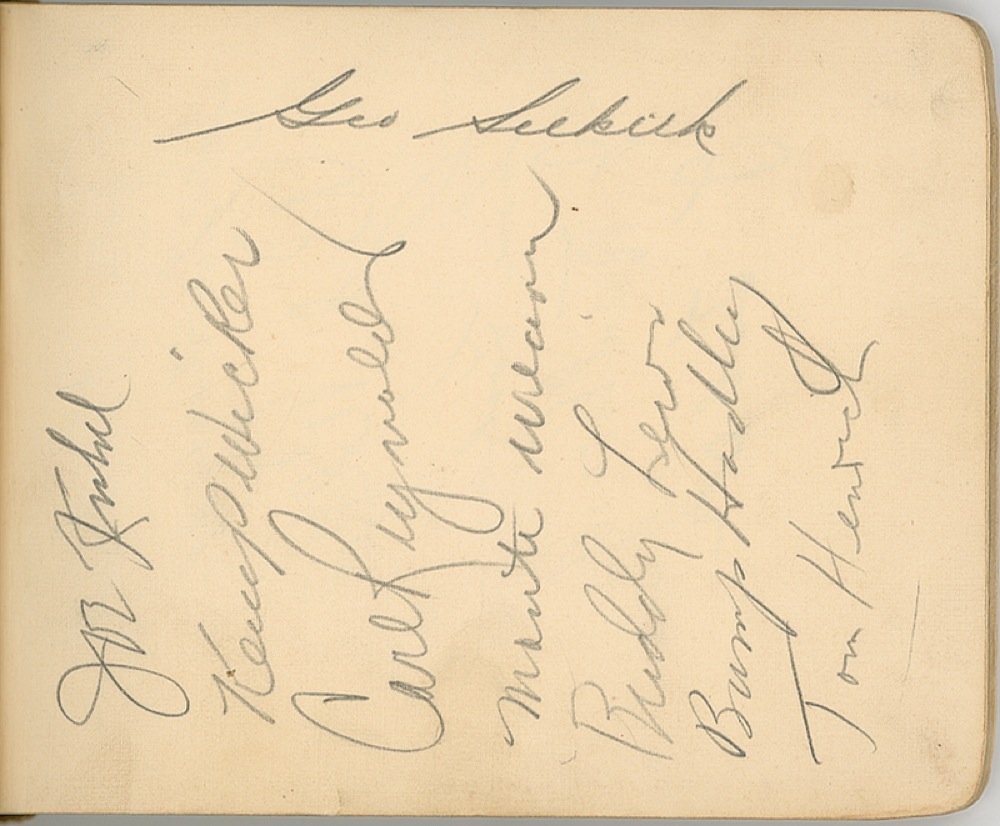 Geo Selkirk
Joe Kuhel
Kemp Wicker
Carl Reynolds
Monte Weaver
Buddy Lewis
Bump Hadley
Tom Henrich